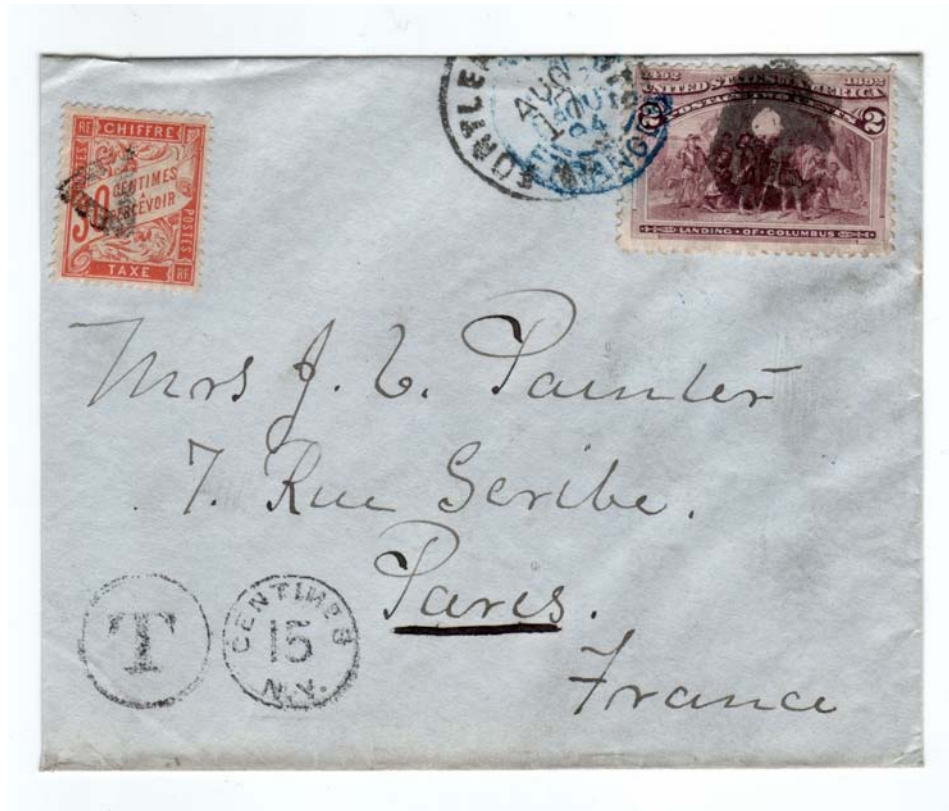 RF CHIFFRE
CENTIMES
A
PERCEVOIR
POSTES
TAXE RF
AUG
94
1492 1892
UNITED STATES OF AMERICA
POSTAGE TWO CENTS
2 2
LANDING · OF · COLUMBUS
Mrs J. C. Painter
7. Rue Scribe.
Paris.
France
T
CENTIMES
15
N.Y.